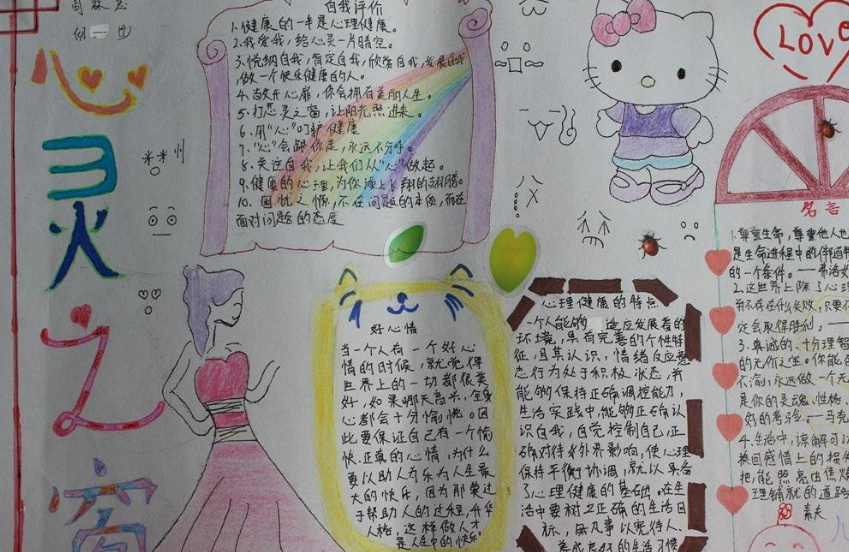 心灵之窗
自我评价
1.健康的一半是心理健康。
2.我爱我,给心灵一片晴空。
3.悦纳自我,肯定自我,欣赏自我,发展自我
,做一个快乐健康的人。
4.敞开心扉,你会拥有美丽人生。
5.打开心灵之窗,让阳光照进来。
6.用“心”呵护健康
7.“心”会跟你走,永远不分手。
8.关注自我,让我们从“心”做起。
9.健康的心理,为你添上翱翔的翅膀。
10.困忧之惊,不在问题的本依,而在
面对问题的态度
LOVE
好心情
当一个人有一个好心
情的时候,就觉得
世界上的一切都很美
好,如果哪天高兴,全身
心都会十分愉悦。因
此要保证自己有一个愉
快、正真的心情,为什么
要以助人为乐为人生最
大的快乐,因为那要过
于帮助人的过程,升华
人格,这样做人才
是人生中的快乐。
心理健康的特点
一个人能够适应发展着的
环境,具有完善的个性特
征,且其认识,情绪反应
态行为处于积极状态,并
能够保持正确调控能力,
生活实践中,能够正确认
识自我,自觉控制自己,正
确对待外界影响,使心理
保持平衡协调,就以具备
了心理健康的基础。在生
活中要树立正确的生活目
标,每凡事以宽待人。
养成良好的生活习惯
名言
1.尊重生命,尊重他人也
是生命进程中的伴随
的一个条件。——弗洛
2.这世界上除了心理
定会取得胜利。——
3.真诚的、十分理智
的无价之宝。你能否
不渝,永远做一个无
是你的灵魂、性格、
好的考验。——马克
4.生活中,谅解可以
换回感情上的损失
理铺就的道路